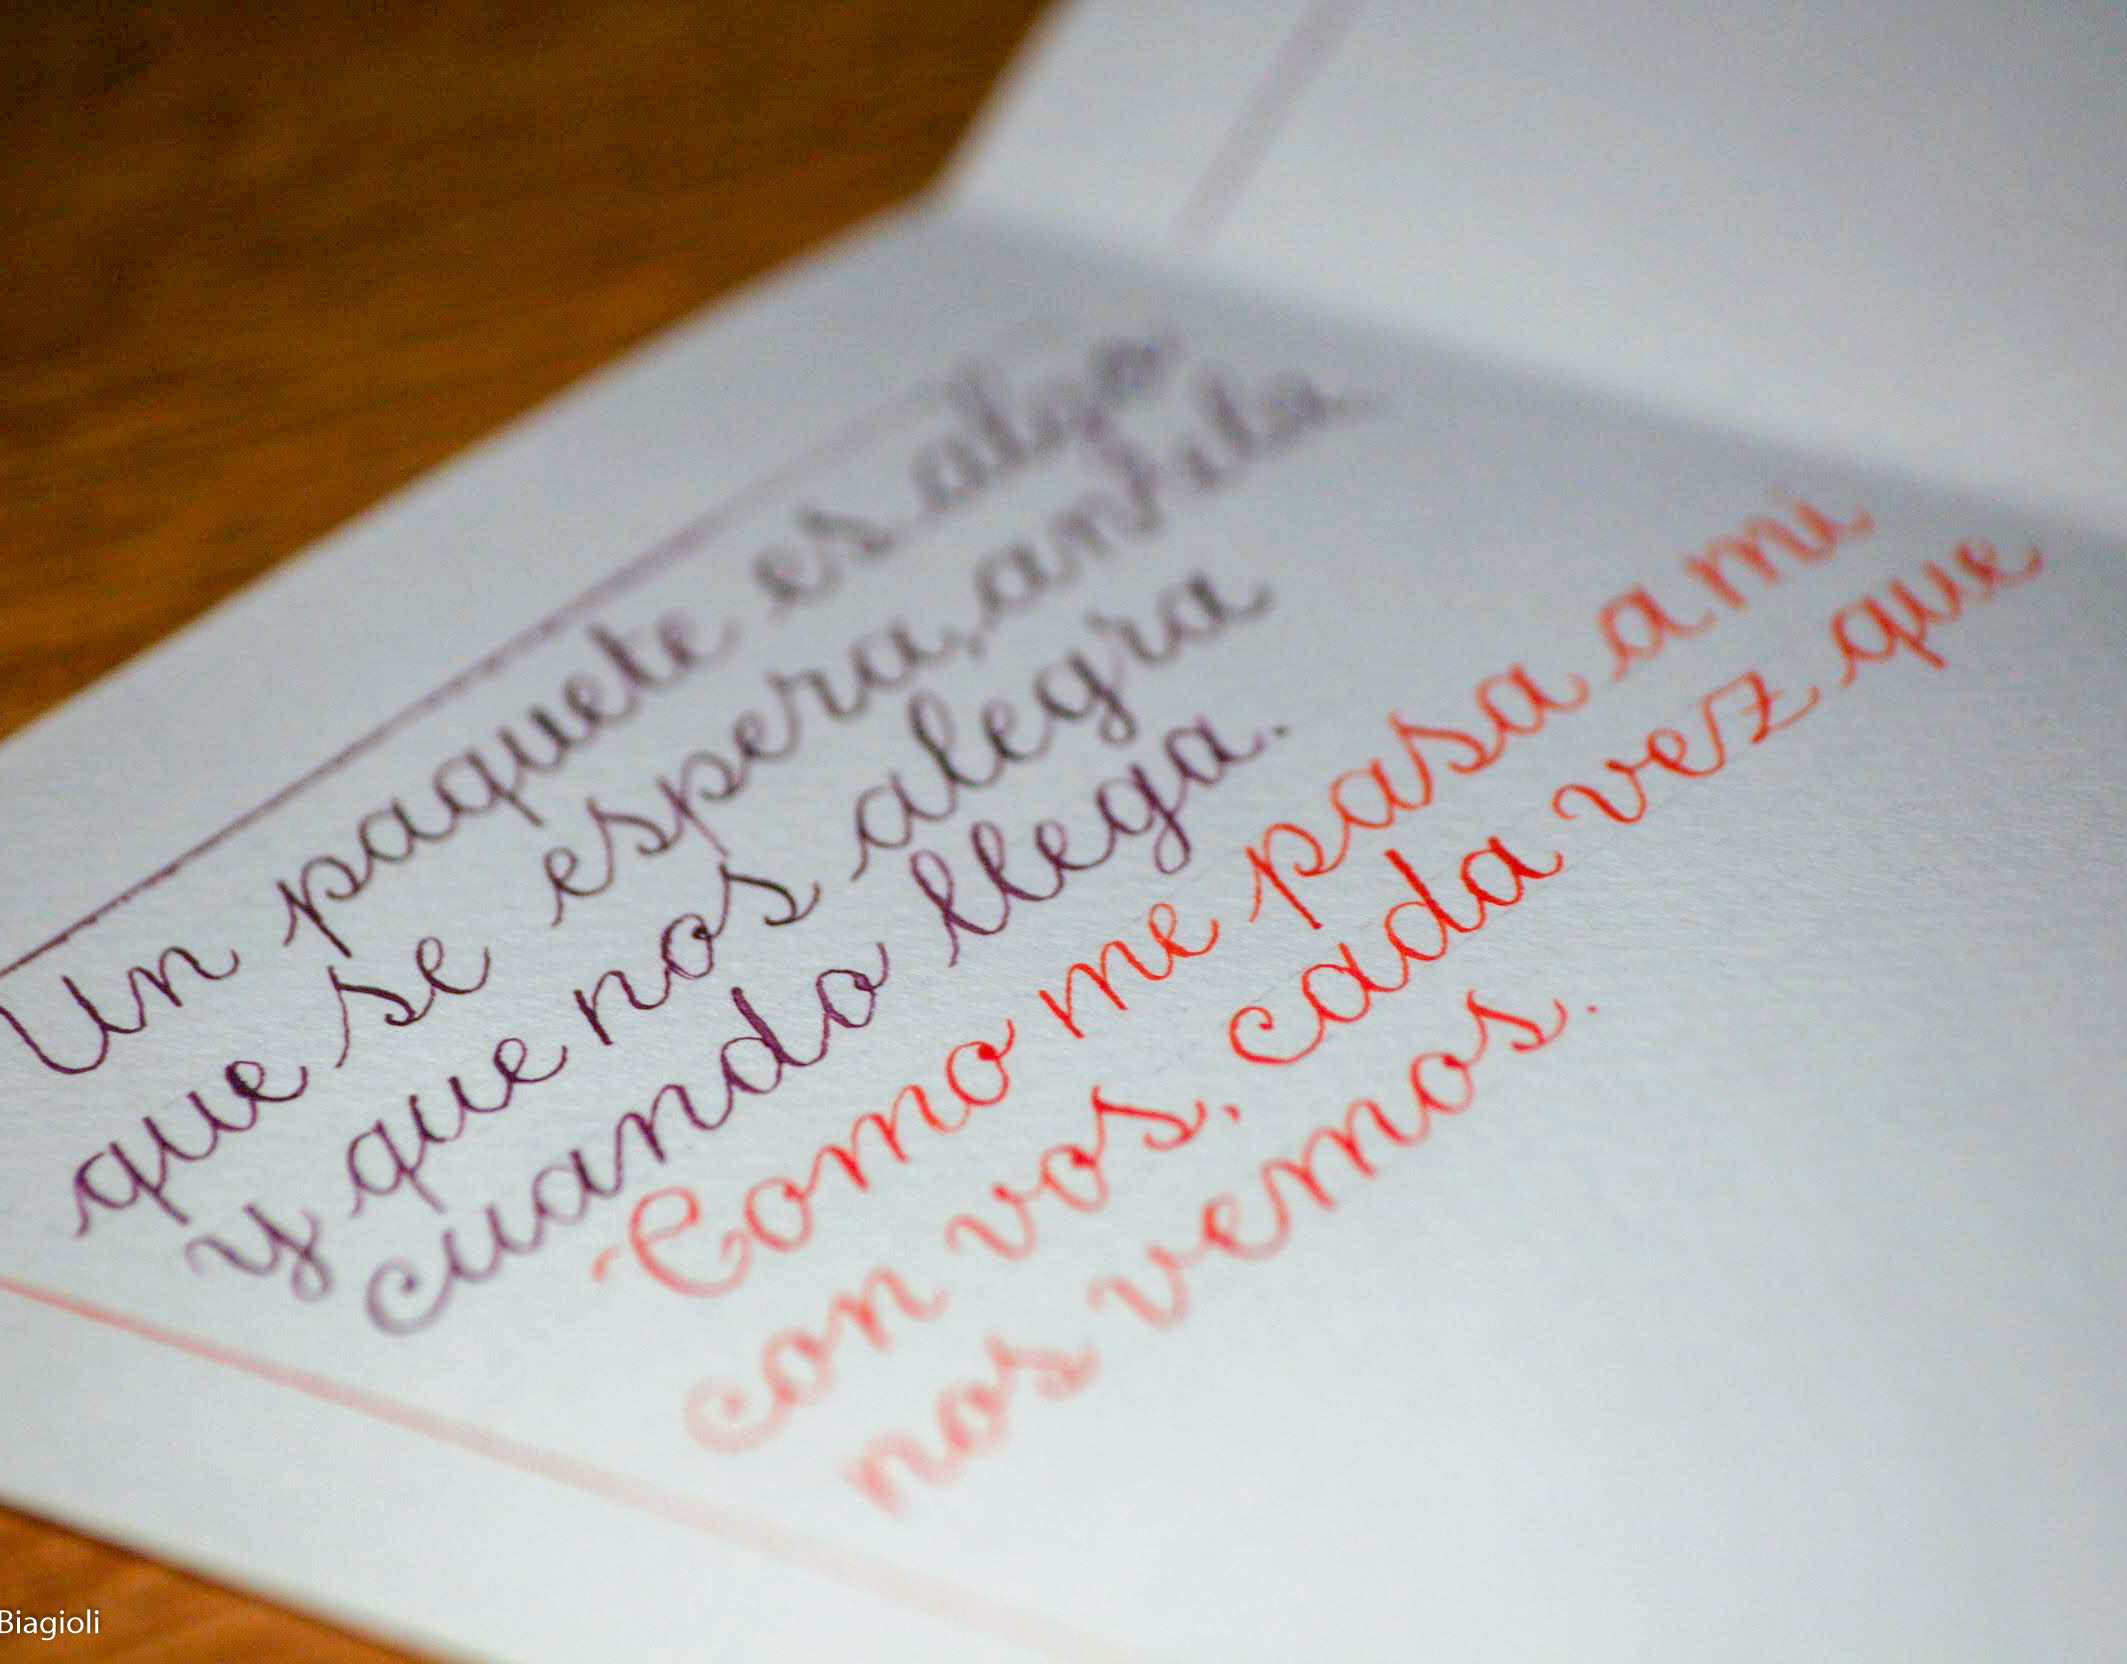 Un paquete es algo
que se espera, anhela
y que nos alegra
cuando llega.
Como me pasa a mi
con vos, cada vez que
nos vemos.
Biagioli